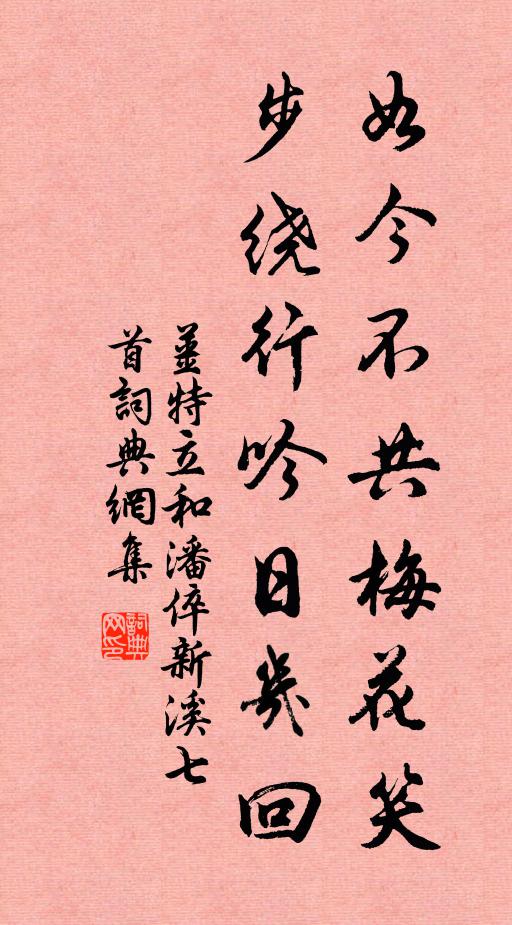 如今不共梅花笑
步绕行吟日几回
姜特立和潘倅新溪七
首詞典網集
詞典网印